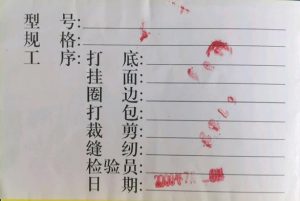 型 号:
规 格:
工 序: 打 底:
挂 面:
圈 边:
打 包:
裁 剪:
缝 纫:
检验员:
日 期: